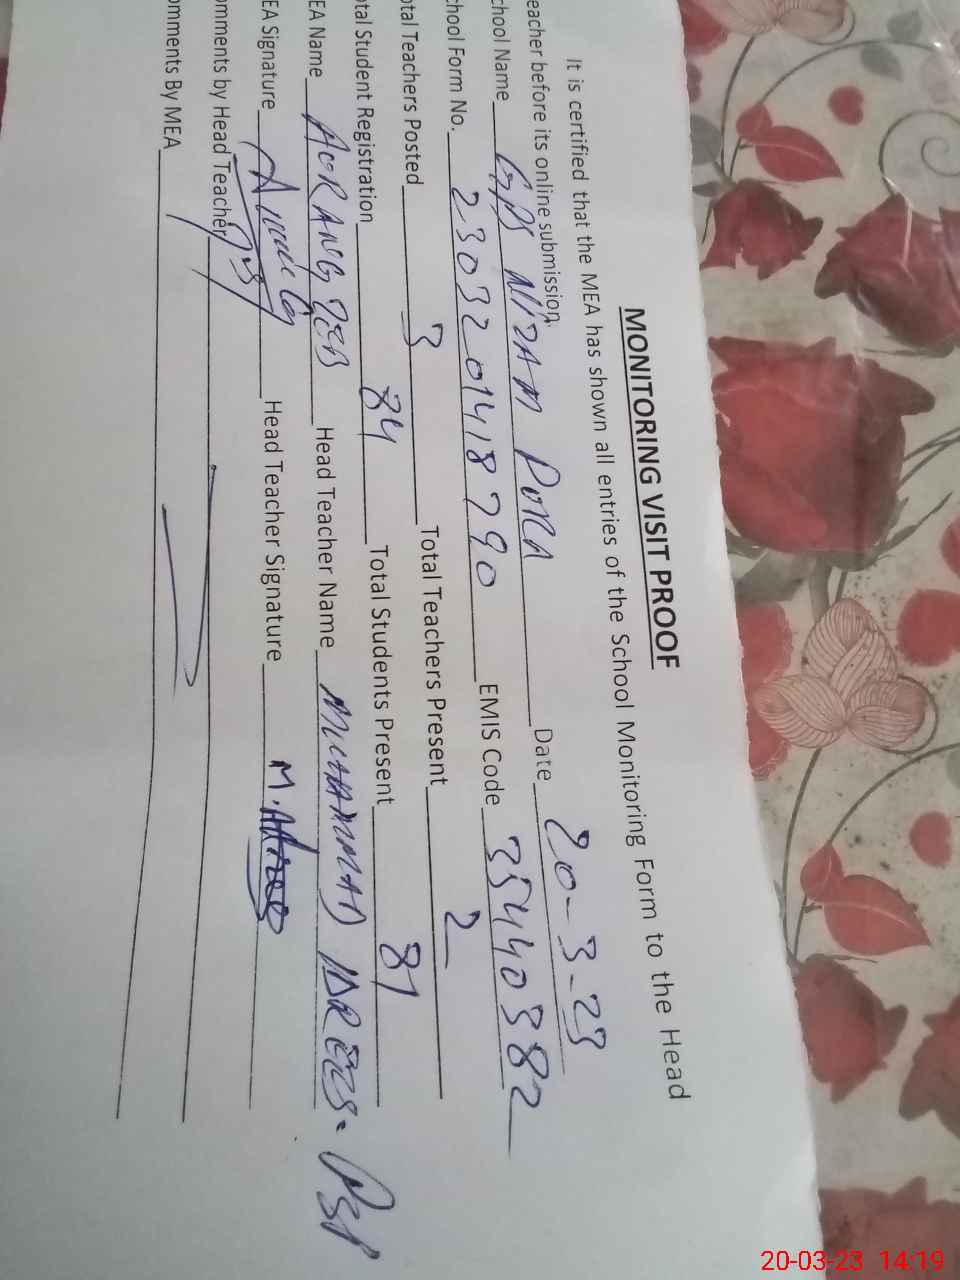 MONITORING VISIT PROOF
It is certified that the MEA has shown all entries of the School Monitoring Form to the Head
eacher before its online submission.
chool Name GPS NIZAM PURA Date 20-3-23
chool Form No. 2303201418790 EMIS Code 35440382
otal Teachers Posted 3 Total Teachers Present 2
otal Student Registration 84 Total Students Present 81
EA Name AORANGZEB Head Teacher Name MUHAMMAD IDREES. PST
EA Signature Head Teacher Signature M.
omments by Head Teacher
omments By MEA
20-03-23 14:19